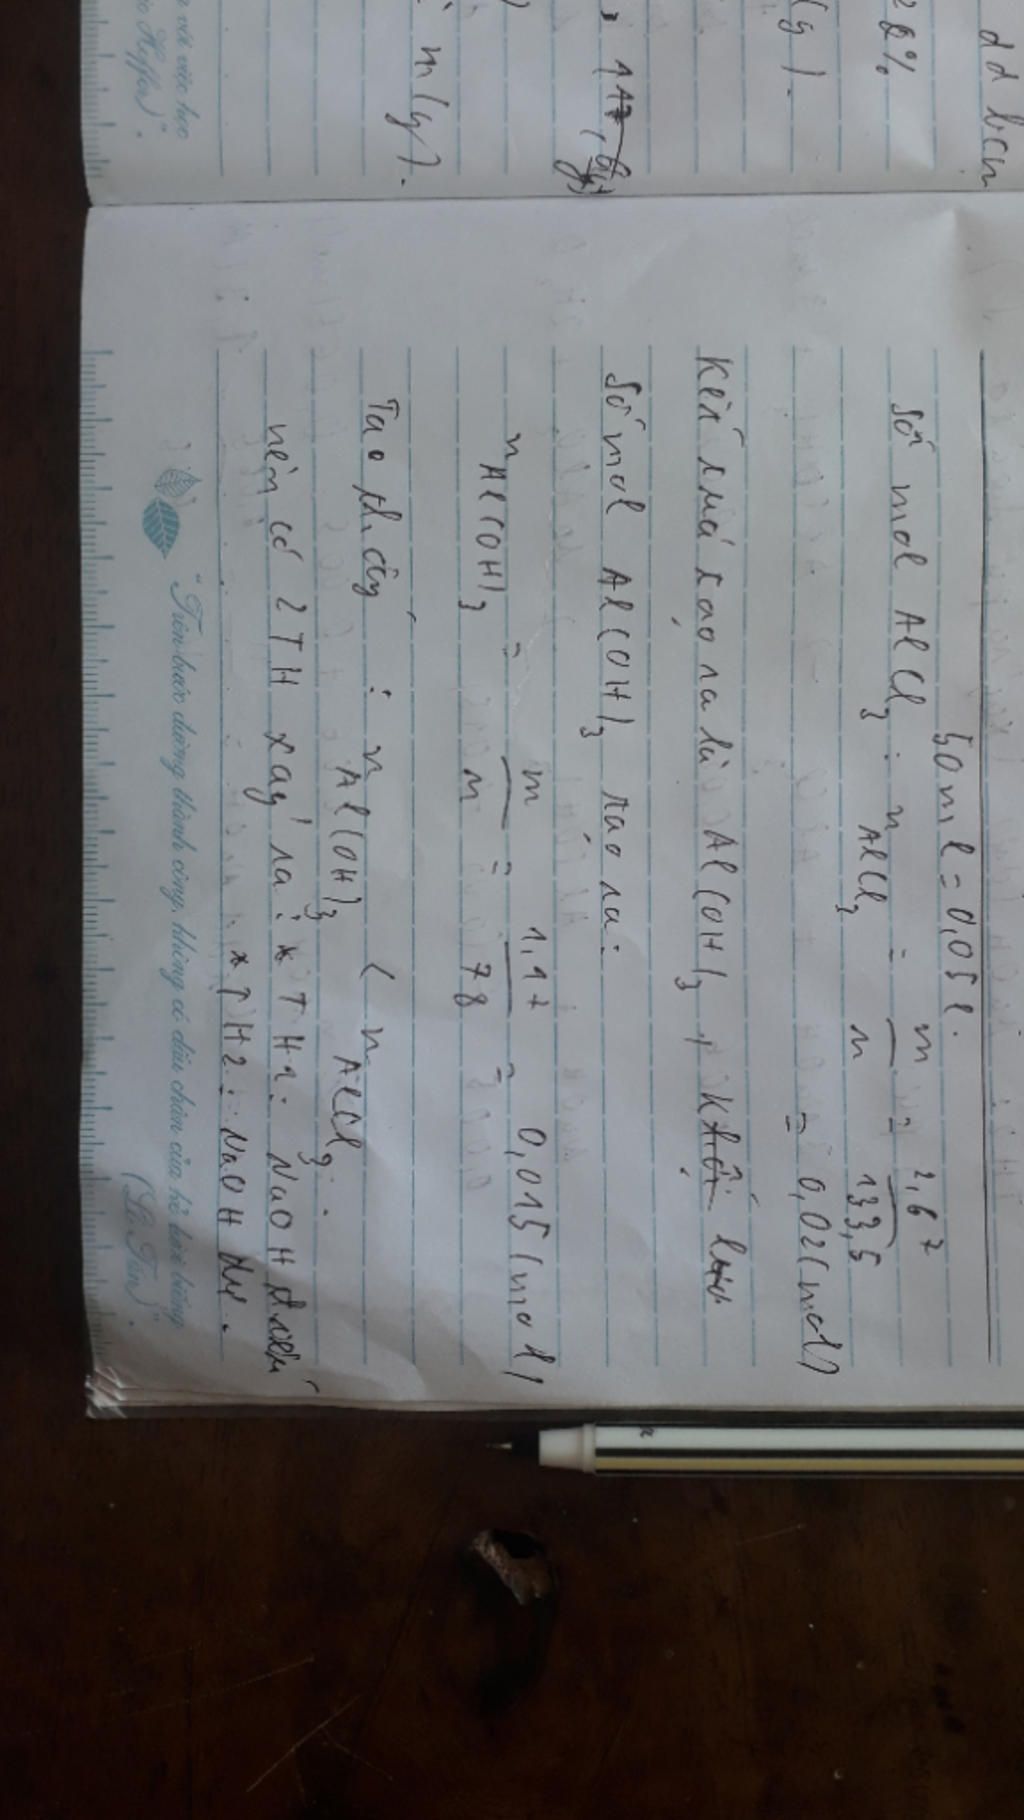 dd bcn
28%
(g).
m(g).
50ml = 0,05l.
Số mol AlCl3 : nAlCl3 = m/M = 2,67/133,5
= 0,02(mol)
Kết tủa tạo ra là Al(OH)3,
Số mol Al(OH)3 tạo ra:
nAl(OH)3 = m/M = 1,17/78 = 0,015(mol)
Ta thấy : nAl(OH)3 < nAlCl3.
nên có 2TH xảy ra: * TH1: NaOH thiếu
* TH2: NaOH dư.
"Trên bước đường thành công, không có dấu chân của kẻ lười biếng"
(Lỗ Tấn).